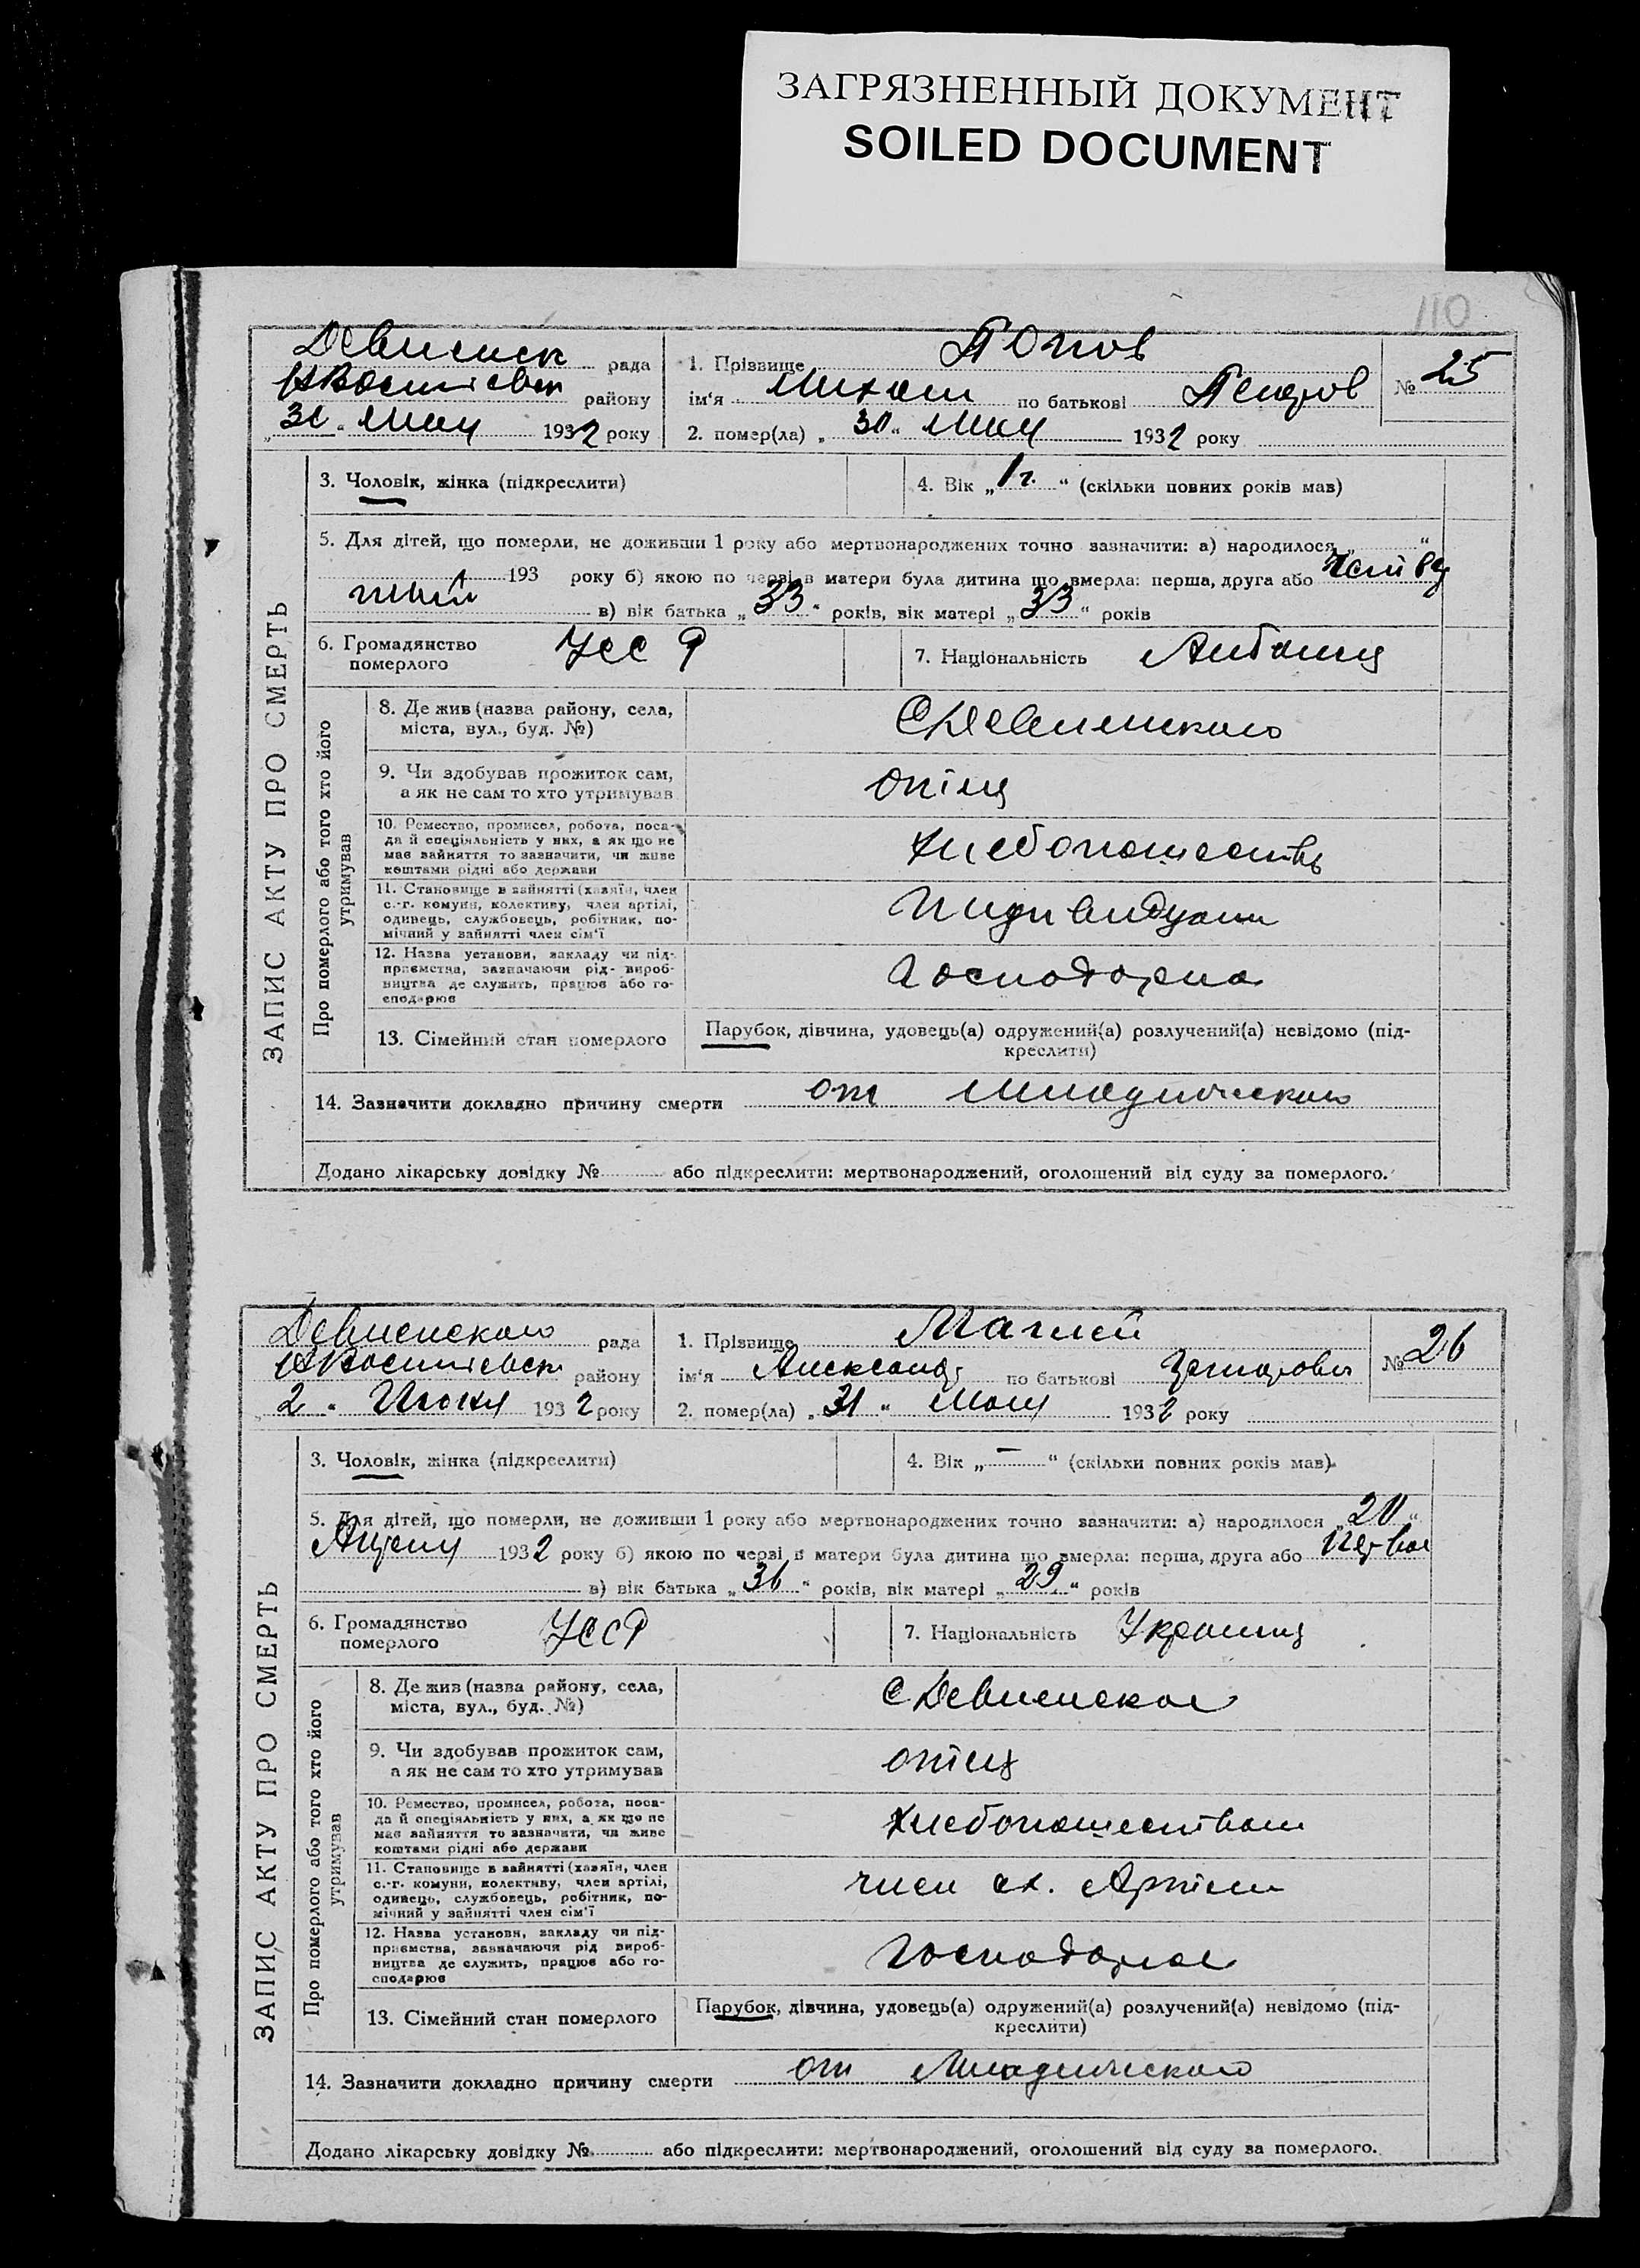 ЗАГРЯЗНЕННЫЙ ДОКУМЕНТ
SOILED DOCUMENT
110
Девненск рада 1. Прізвище Попов № 25
району ім'я Михаил по батькові Петров
„31“ Мая 1932 року 2. помер(ла) „30“ Мая 1932 року
3. Чоловік, жінка (підкреслити) 4. Вік „1 г.“ (скільки повних років мав)
5. Для дітей, що померли, не доживши 1 року або мертвонароджених точно зазначити: а) народилося „ “
193 року б) якою по черзі в матери була дитина що вмерла: перша, друга або Четвер
тый в) вік батька „33“ років, вік матері „33“ років
6. Громадянство померлого УССР 7. Національність Албанец
ЗАПИС АКТУ ПРО СМЕРТЬ
Про померлого або того хто його утримував
8. Де жив (назва району, села,
міста, вул., буд. №)
9. Чи здобував прожиток сам, отец
а як не сам то хто утримував
10. Ремество, промисел, робота, поса-
да й спеціяльність у них, а як що не
має вайняття то зазначити, чи живе
коштами рідні або держави
11. Становище в вайнятті (хазяїн, член
с.-г. комуни, колективу, член артілі,
одинець, службовець, робітник, по-
мічний у вайнятті член сім'ї
12. Назва установи, закладу чи під-
приємства, зазначаючи рід вироб-
ництва де служить, працює або го-
сподарює
13. Сімейний стан померлого Парубок, дівчина, удовець(а) одружений(а) розлучений(а) невідомо (під-
креслити)
14. Зазначити докладно причину смерти от Младического
Додано лікарську довідку № або підкреслити: мертвонароджений, оголошений від суду за померлого.
Девненского рада 1. Прізвище Маглей № 26
району ім'я Александр по батькові Захарович
„2“ Июня 1932 року 2. помер(ла) „31“ Мая 1932 року
3. Чоловік, жінка (підкреслити) 4. Вік „—“ (скільки повних років мав)
5. Для дітей, що померли, не доживши 1 року або мертвонароджених точно зазначити: а) народилося „20“
Апреля 1932 року б) якою по черзі в матери була дитина що вмерла: перша, друга або Первое
в) вік батька „36“ років, вік матері „29“ років
6. Громадянство померлого УССР 7. Національність Украинец
ЗАПИС АКТУ ПРО СМЕРТЬ
Про померлого або того хто його утримував
8. Де жив (назва району, села, с Девненское
міста, вул., буд. №)
9. Чи здобував прожиток сам, отец
а як не сам то хто утримував
10. Ремество, промисел, робота, поса-
да й спеціяльність у них, а як що не
має вайняття то зазначити, чи живе
коштами рідні або держави
Хлебопашеством
11. Становище в вайнятті (хазяїн, член
с.-г. комуни, колективу, член артілі,
одинець, службовець, робітник, по-
мічний у вайнятті член сім'ї
член сх. Артели
12. Назва установи, закладу чи під-
приємства, зазначаючи рід вироб-
ництва де служить, працює або го-
сподарює
13. Сімейний стан померлого Парубок, дівчина, удовець(а) одружений(а) розлучений(а) невідомо (під-
креслити)
14. Зазначити докладно причину смерти от Младического
Додано лікарську довідку № або підкреслити: мертвонароджений, оголошений від суду за померлого.